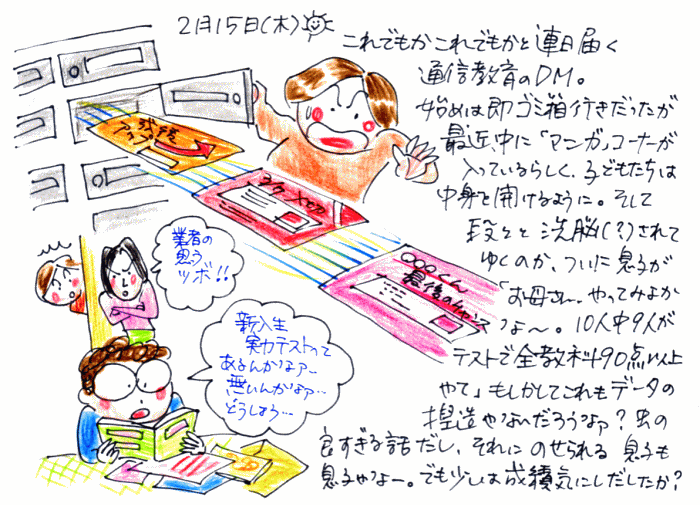 2月15日(木)
これでもかこれでもかと連日届く
通信教育のDM。
始めは即ゴミ箱行きだったが
最近、中に「マンガ」コーナーが
入っているらしく、子どもたちは
中身を開けるように。そして
段々と洗脳(?)されて
ゆくのか、ついに息子が
「お母さん、やってみよか
なー。10人中9人が
テストで全教科90点以上
やて」もしかしてこれもデータの
捏造やないだろうなァ?虫の
良すぎる話だし、それにのせられる息子も
息子やなー。でも少しは成績気にしだしたか?
成績
アップ
○○○くん
最後のチャンス
業者の
思う
ツボ!!
新入生
実力テストって
あるんかなァー
無いんかなァ…
どうしよう…